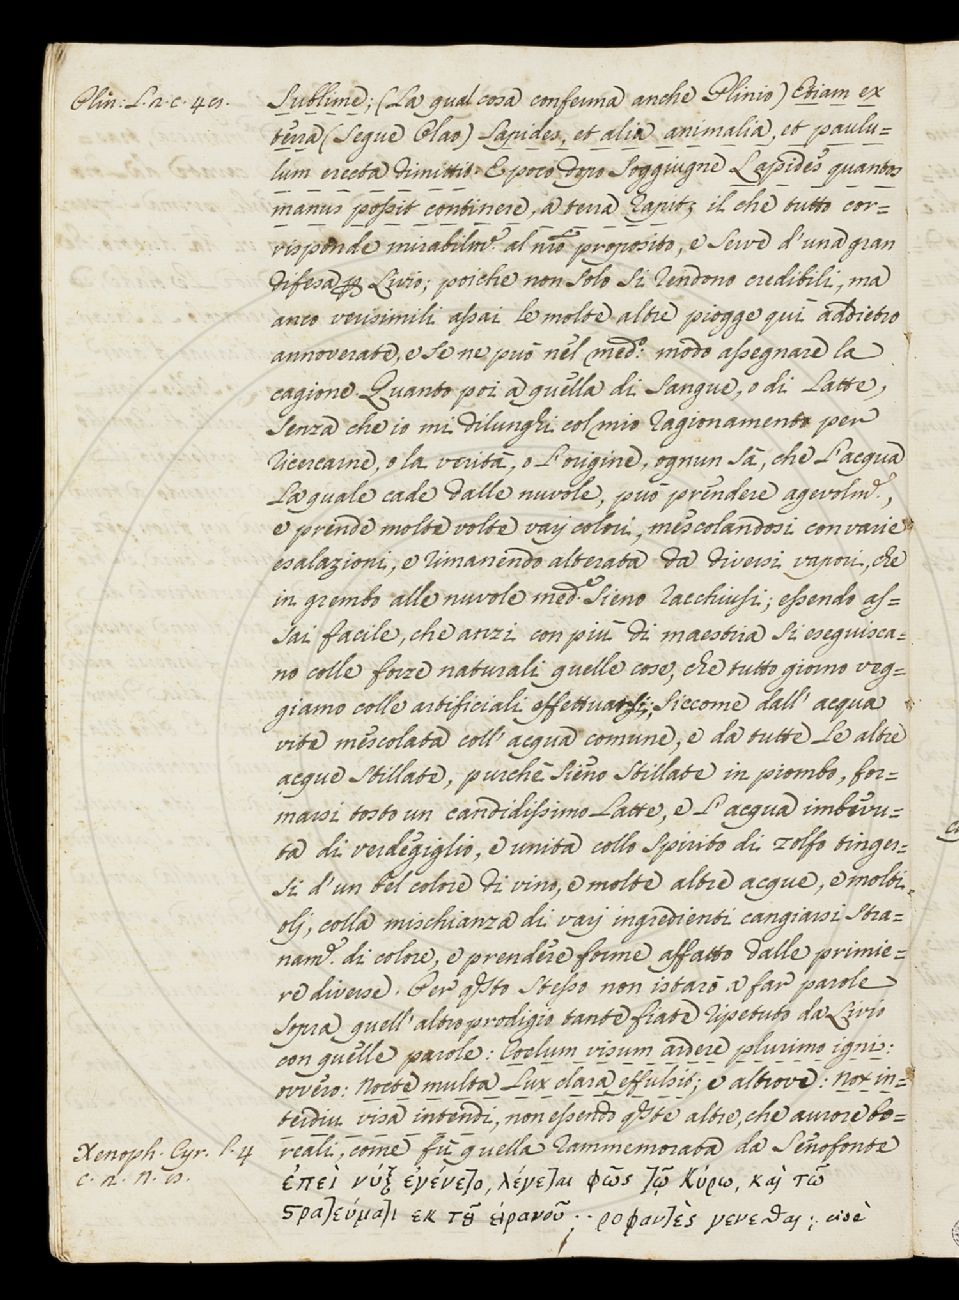 Plin: L. 2. c. 49.
Sublime; (La qual cosa conferma anche Plinio) Etiam ex
terra (Segue Olao) Lapides, et alia animalia, et paulu=
lum erecta dimittit. E poco dopo Soggiugne Lapides quantos
manus possit continere, a terra rapit; il che tutto cor=
risponde mirabilm.e al nro proposito, e Serve d'una gran
difesa p Livio; poiche non solo Si rendono credibili, ma
anco verisimili assai le molte altre piogge quì addietro
annoverate, e Se ne può nel med.o modo assegnare la
cagione. Quanto poi a quella di Sangue, o di Latte,
Senza che io mi dilunghi col mio ragionamento per
ricercarne, o la verità, o l'origine, ognun Sà, che l'acqua
La quale cade dalle nuvole, può prendere agevolm.e,
e prende molte volte varj colori, mescolandosi con varie
esalazioni, e rimanendo alterata da diversi vapori, che
in grembo alle nuvole med.e Sieno racchiusi; essendo as=
sai facile, che anzi con più di maestria Si eseguisca=
no colle forze naturali quelle cose, che tutto giorno veg=
giamo colle artificiali effettuarsi; Siccome dall'acqua
vite mescolata coll'acqua comune, e da tutte Le altre
acque Stillate, purchè Sieno Stillate in piombo, for=
marsi tosto un candidissimo Latte, e L'acqua imbevu=
ta di verdegiglio, e unita collo Spirito di zolfo tinger=
si d'un bel colore di vino, e molte altre acque, e molti
olj, colla mischianza di varj ingredienti cangiarsi Stra=
nam.e di colore, e prendere forme affatto dalle primie=
re diverse. Per qsto Stesso non istarò a far parole
Sopra quell'altro prodigio tante fiate ripetuto da Livio
con quelle parole: Coelum visum ardere plurimo igni:
ovvero: Nocte multa Lux clara effulsit; e altrove: Nox in=
terdiu visa intendi, non essendo qste altre, che aurore bo=
reali, come fù quella rammemorata da Senofonte
Xenoph. Cyr. l. 4
c. 2. n. 9.
ἐπεὶ νὺξ ἐγένετο, λέγεται φῶς τῷ Κύρω, καὶ τῶ
στρατεύματι εκ τοῦ ουρανοῦ